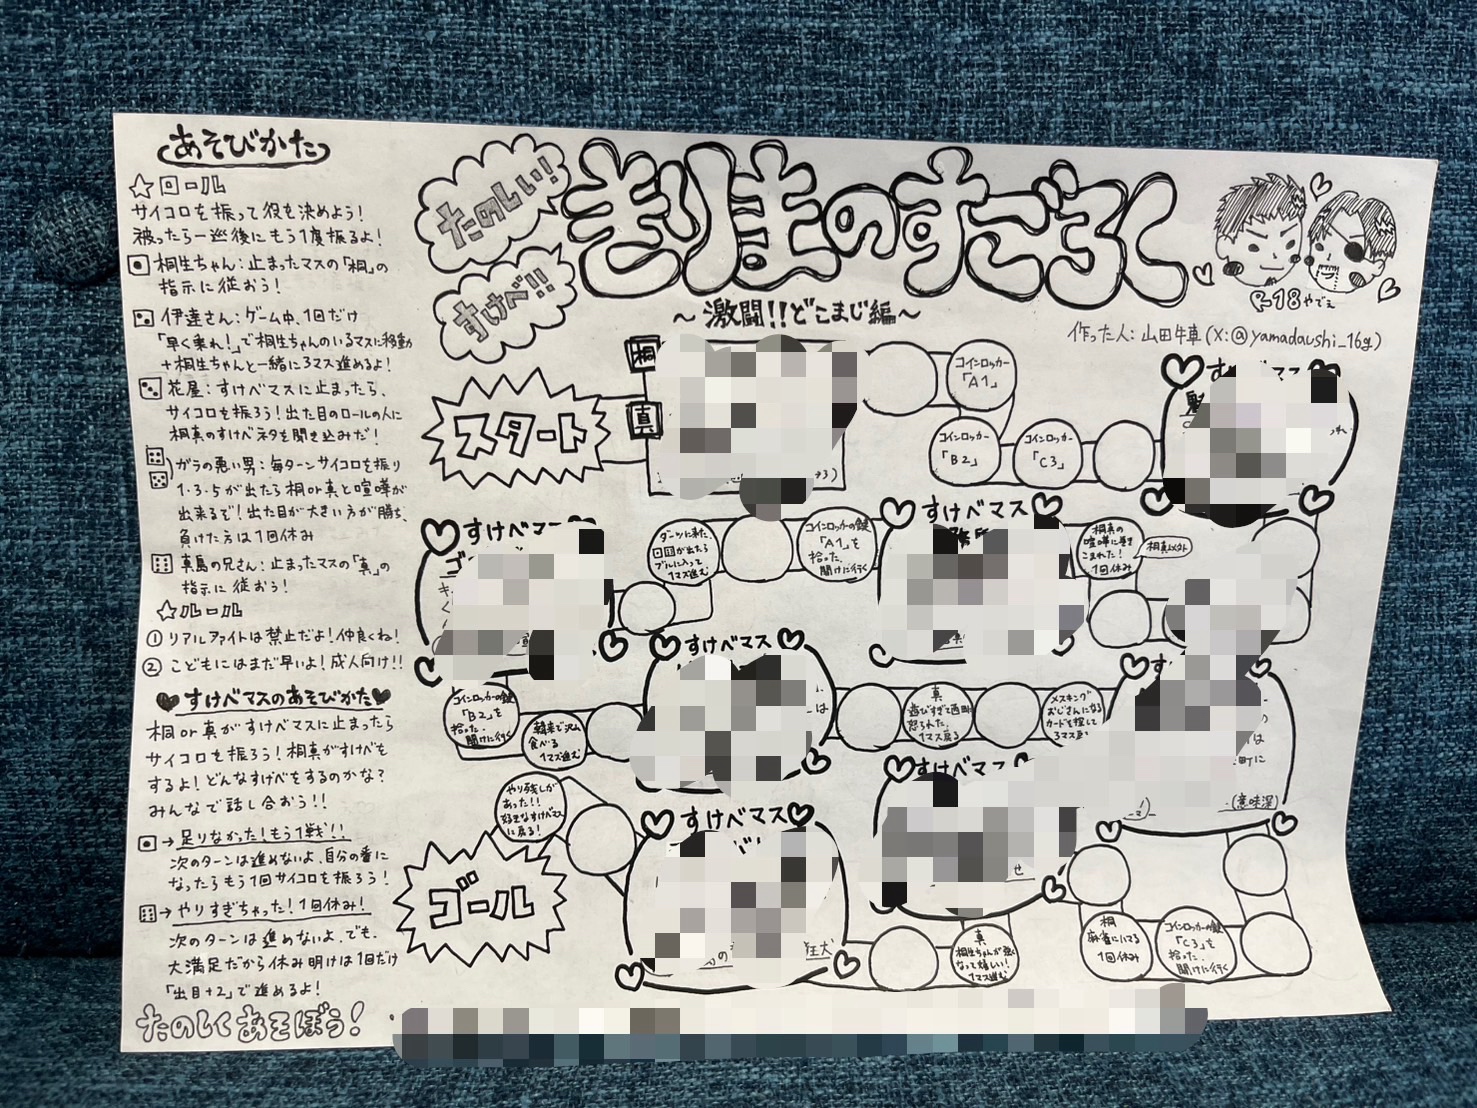 あそびかた
☆ロール
サイコロを振って役を決めよう!
被ったら一巡後にもう1度振るよ!
⚀桐生ちゃん:止まったマスの「桐」の
指示に従おう!
⚁伊達さん:ゲーム中、1回だけ
「早く乗れ!」で桐生ちゃんのいるマスに移動
+桐生ちゃんと一緒に3マス進めるよ!
⚂花屋:すけべマスに止まったら、
サイコロを振ろう!出た目のロールの人に
桐真のすけべネタを聞き込みだ!
⚃⚄ガラの悪い男:毎ターンサイコロを振り
1・3・5が出たら桐or真と喧嘩が
出来るで!出た目が大きい方が勝ち、
負けた方は1回休み
⚅真島の兄さん:止まったマスの「真」の
指示に従おう!
☆ルール
①リアルファイトは禁止だよ!仲良くね!
②こどもにはまだ早いよ!成人向け!!
♥すけべマスのあそびかた♥
桐or真がすけべマスに止まったら
サイコロを振ろう!桐真がすけべを
するよ!どんなすけべをするのかな?
みんなで話し合おう!!
⚀→足りなかった!もう1戦!!
次のターンは進めないよ、自分の番に
なったらもう1回サイコロを振ろう!
⚅→やりすぎちゃった!1回休み!
次のターンは進めないよ、でも、
大満足だから休み明けは1回だけ
「出目+2」で進めるよ!
たのしくあそぼう!
たのしい!
すけべ!!
きりまのすごろく
~激闘!!どこまじ編~
R-18やでぇ
作った人:山田牛車(X:@yamadaushi_16g)
スタート
桐
真
コインロッカー
「A1」
コインロッカー
「B2」
コインロッカー
「C3」
すけべマス
桐真の
喧嘩に巻き
こまれた!
1回休み
桐真以外
すけべマス
コインロッカーの鍵
「A1」を
拾った、
開けに行く
ダーツに来た、
⚀⚅が出たら
ブルに入って
1マス進む
すけべマス
コインロッカーの鍵
「B2」を
拾った、
開けに行く
韓来で沢山
食べる
1マス進む
すけべマス
真
遊びすぎて西田に
怒られた、
1マス戻る
メスキング
おじさんになる
カードを探して
3マス
(意味深)
桐
麻雀にハマる
1回休み
コインロッカーの鍵
「C3」を
拾った、
開けに行く
すけべマス
真
桐生ちゃんが強く
なって嬉しい!
1マス進む
すけべマス
狂犬
やり残しが
あった!!
好きなすけべマス
に戻る!
ゴール